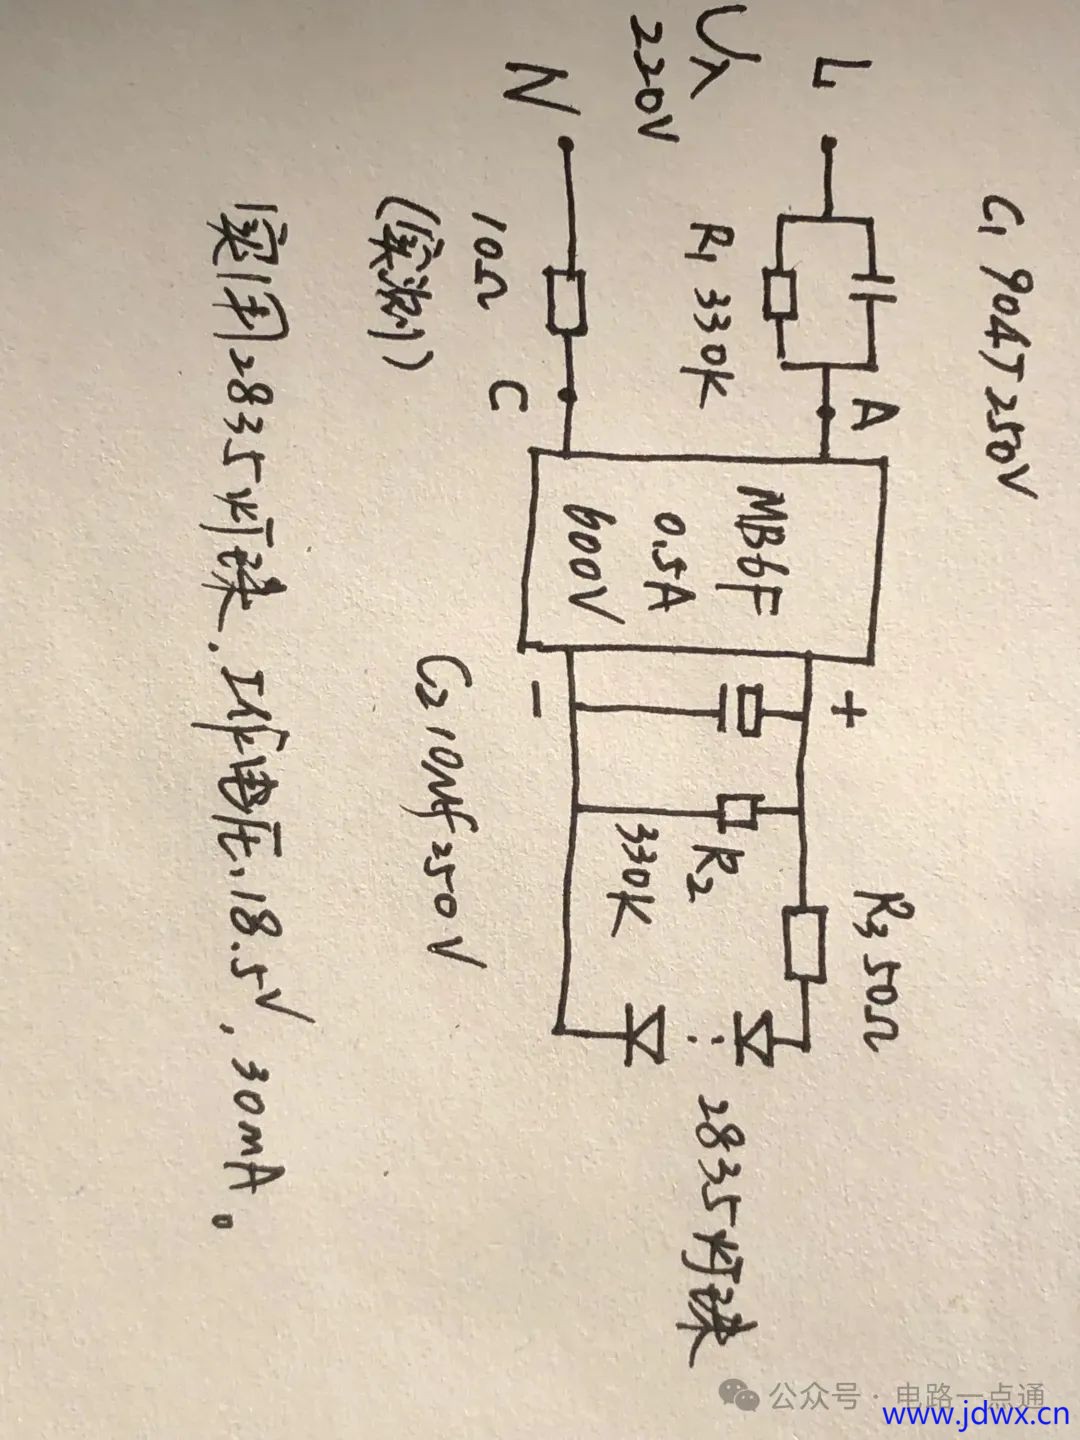 C₁ 904J 250V
L
U入
220V
N
R₁ 330K
A
10Ω
(实测)
C
MB6F
0.5A
600V
+
-
C₂ 10μf 250V
R₂
330K
R₃ 50Ω
2835灯珠
实用2835灯珠、工作电压18.5V, 30mA。
公众号 · 电路一点通
www.jdwx.cn